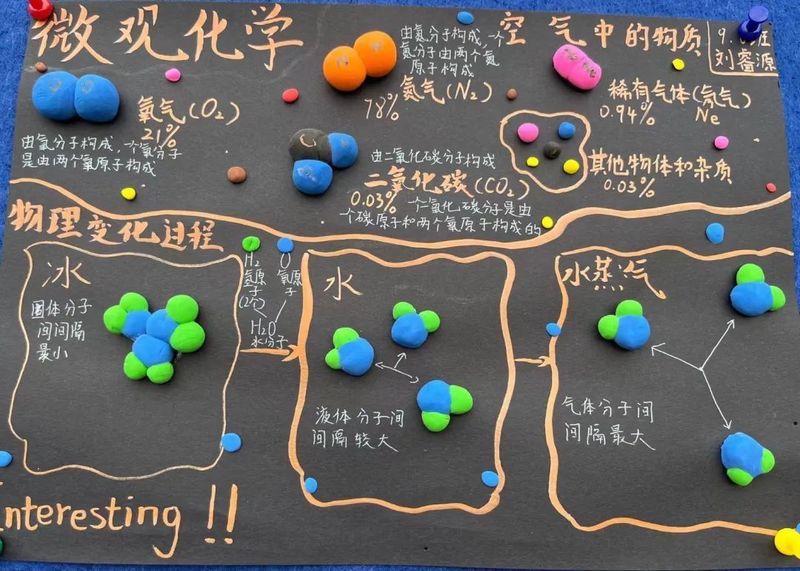 微观化学
空气中的物质
刘睿源
氧气(O₂)
21%
由氧分子构成，一个氧分子
是由两个氧原子构成
由氮分子构成，一个
氮分子由两个氮
原子构成
氮气(N₂)
78%
稀有气体(氖气)
0.94% Ne
由二氧化碳分子构成
二氧化碳(CO₂)
0.03% 一个二氧化碳分子是由一
个碳原子和两个氧原子构成的
其他物体和杂质
0.03%
物理变化过程
冰
固体分子
间间隔
最小
H₂ O
氢原子(2个) 氧原子
H₂O
水分子
水
液体分子间
间隔较大
水蒸气
气体分子间
间隔最大
Interesting !!